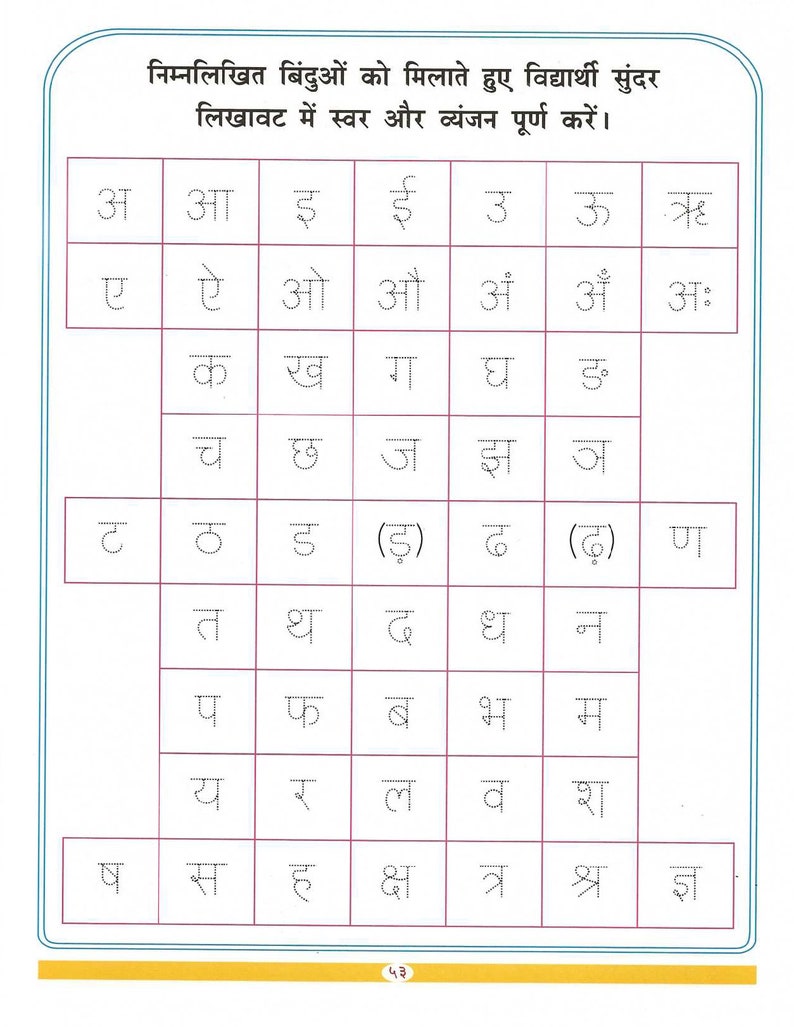 निम्नलिखित बिंदुओं को मिलाते हुए विद्यार्थी सुंदर
लिखावट में स्वर और व्यंजन पूर्ण करें।
अ आ इ ई उ ऊ ऋ
ए ऐ ओ औ अं अँ अः
क ख ग घ ङ
च छ ज झ ञ
ट ठ ड (ड़) ढ (ढ़) ण
त थ द ध न
प फ ब भ म
य र ल व श
ष स ह क्ष त्र श्र ज्ञ
५३